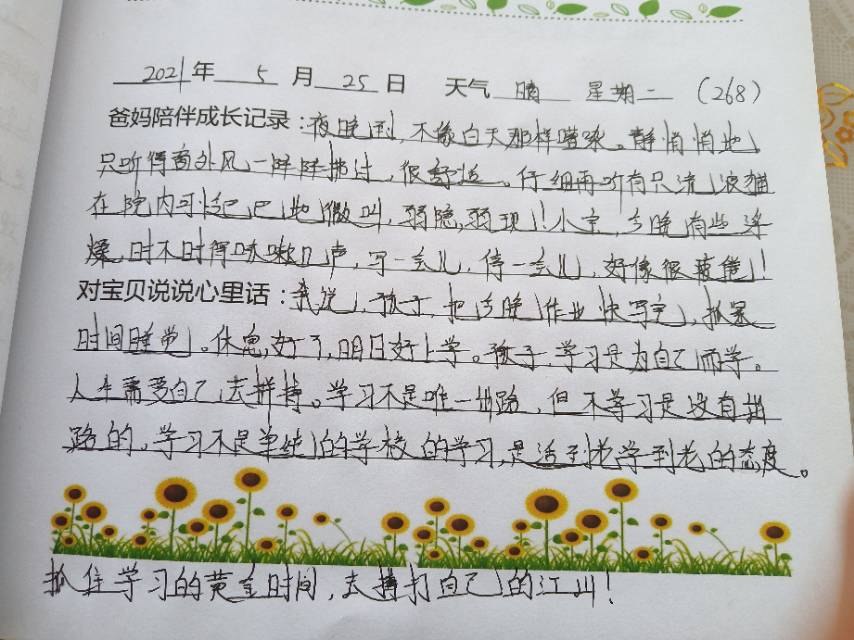 2021年 5 月 25 日 天气 晴 星期二 (268)
爸妈陪伴成长记录：夜晚到，不像白天那样嘈杂。静悄悄地，
只听得窗外风一阵阵拂过，很舒适。仔细再听有只流浪猫
在院内可怜巴巴地傲叫，弱隐，弱现！小宇，今晚有些浮
燥，时不时得咳嗽几声，写一会儿，停一会儿，好像很疲惫！
对宝贝说说心里话：我说，孩子，把今晚作业快写完，抓紧
时间睡觉。休息好了，明日好上学。孩子，学习是为自己而学。
人生需要自己去拼搏。学习不是唯一出路，但不学习是没有出
路的，学习不是单纯的学校的学习，是活到老学到老的态度。
抓住学习的黄金时间，去拼打自己的江山！